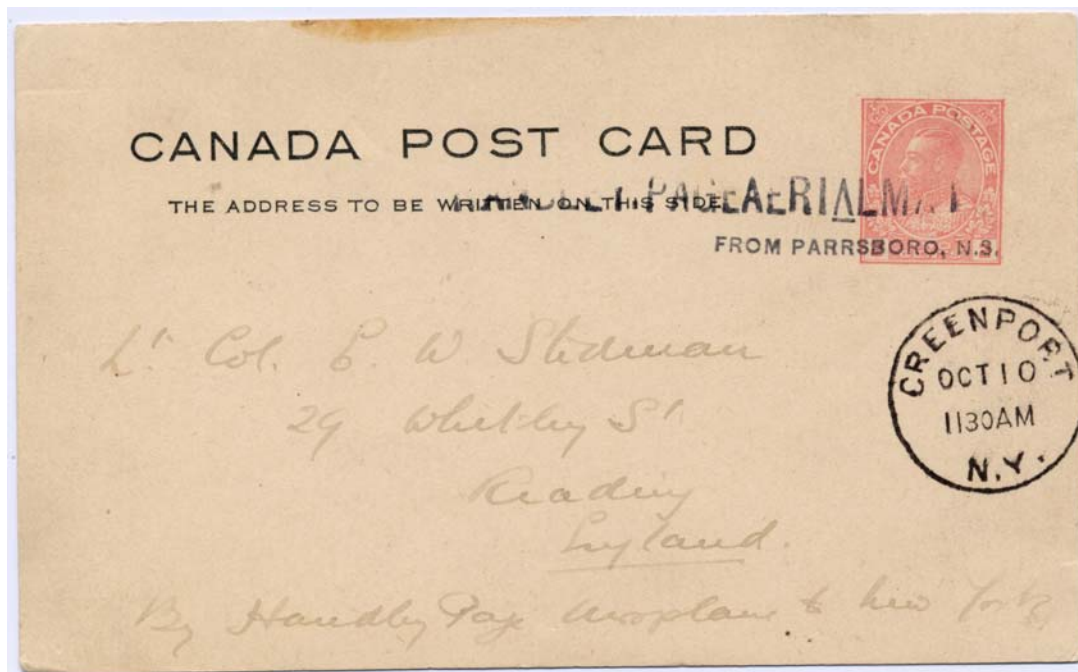 CANADA POST CARD
THE ADDRESS TO BE WRITTEN ON THIS SIDE
CANADA POSTAGE
PAGE AERIAL MAIL
FROM PARRSBORO, N.S.
GREENPORT
OCT 10
1130AM
N.Y.
Lt Col. E W Stedman
29 Whitley St
Reading
England.
By Handley Page Aeroplane to New York